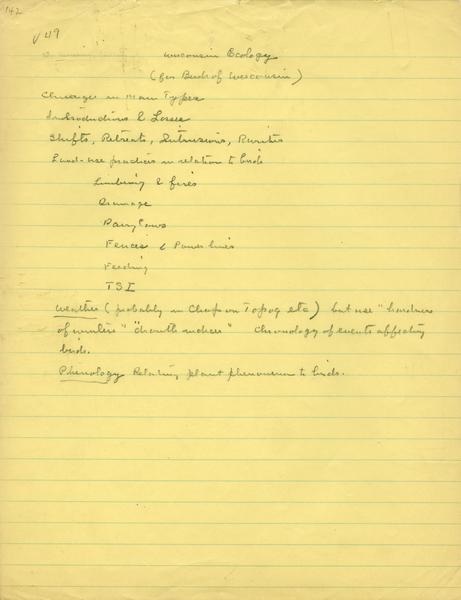 142
v49
Wisconsin Ecology
(for Birds of Wisconsin)
Changes in Main Types
Introductions & Losses
Shifts, Retreats, Intrusions, Rarities
Land-use practices in relation to birds
Lumbering & fires
Drainage
Dairy cows
Fences & Power lines
Feeding
TSI
Weather (probably in Chap on Topog etc) but use "hardness
of winters" "drouth indices" Chronology of events affecting
birds.
Phenology Relating plant phenomena to birds.